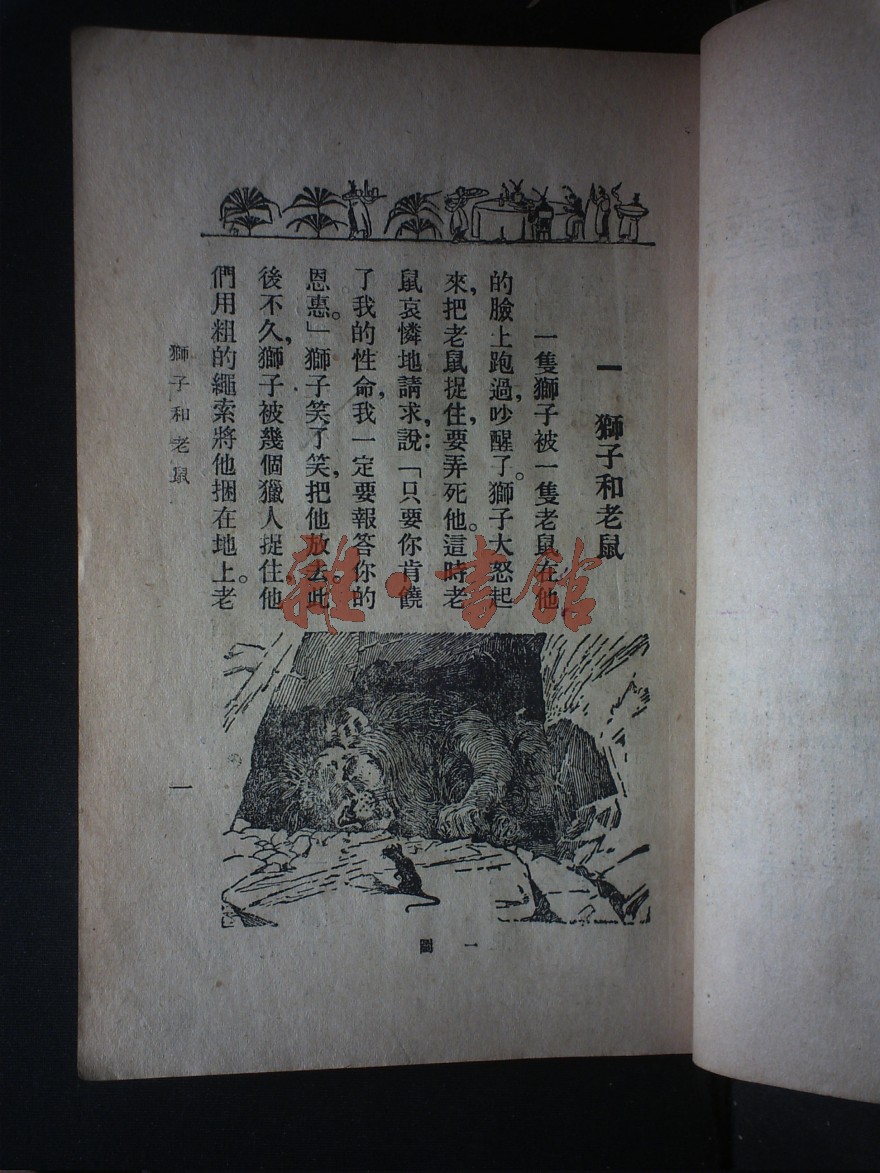 一 獅子和老鼠
一隻獅子被一隻老鼠在他
的臉上跑過，吵醒了。獅子大怒起
來，把老鼠捉住，要弄死他。這時老
鼠哀憐地請求說：「只要你肯饒
了我的性命，我一定要報答你的
恩惠。」獅子笑了笑，把他放去。此
後不久，獅子被幾個獵人捉住，他
們用粗的繩索將他捆在地上。老
獅子和老鼠
一
圖一
雜·書館